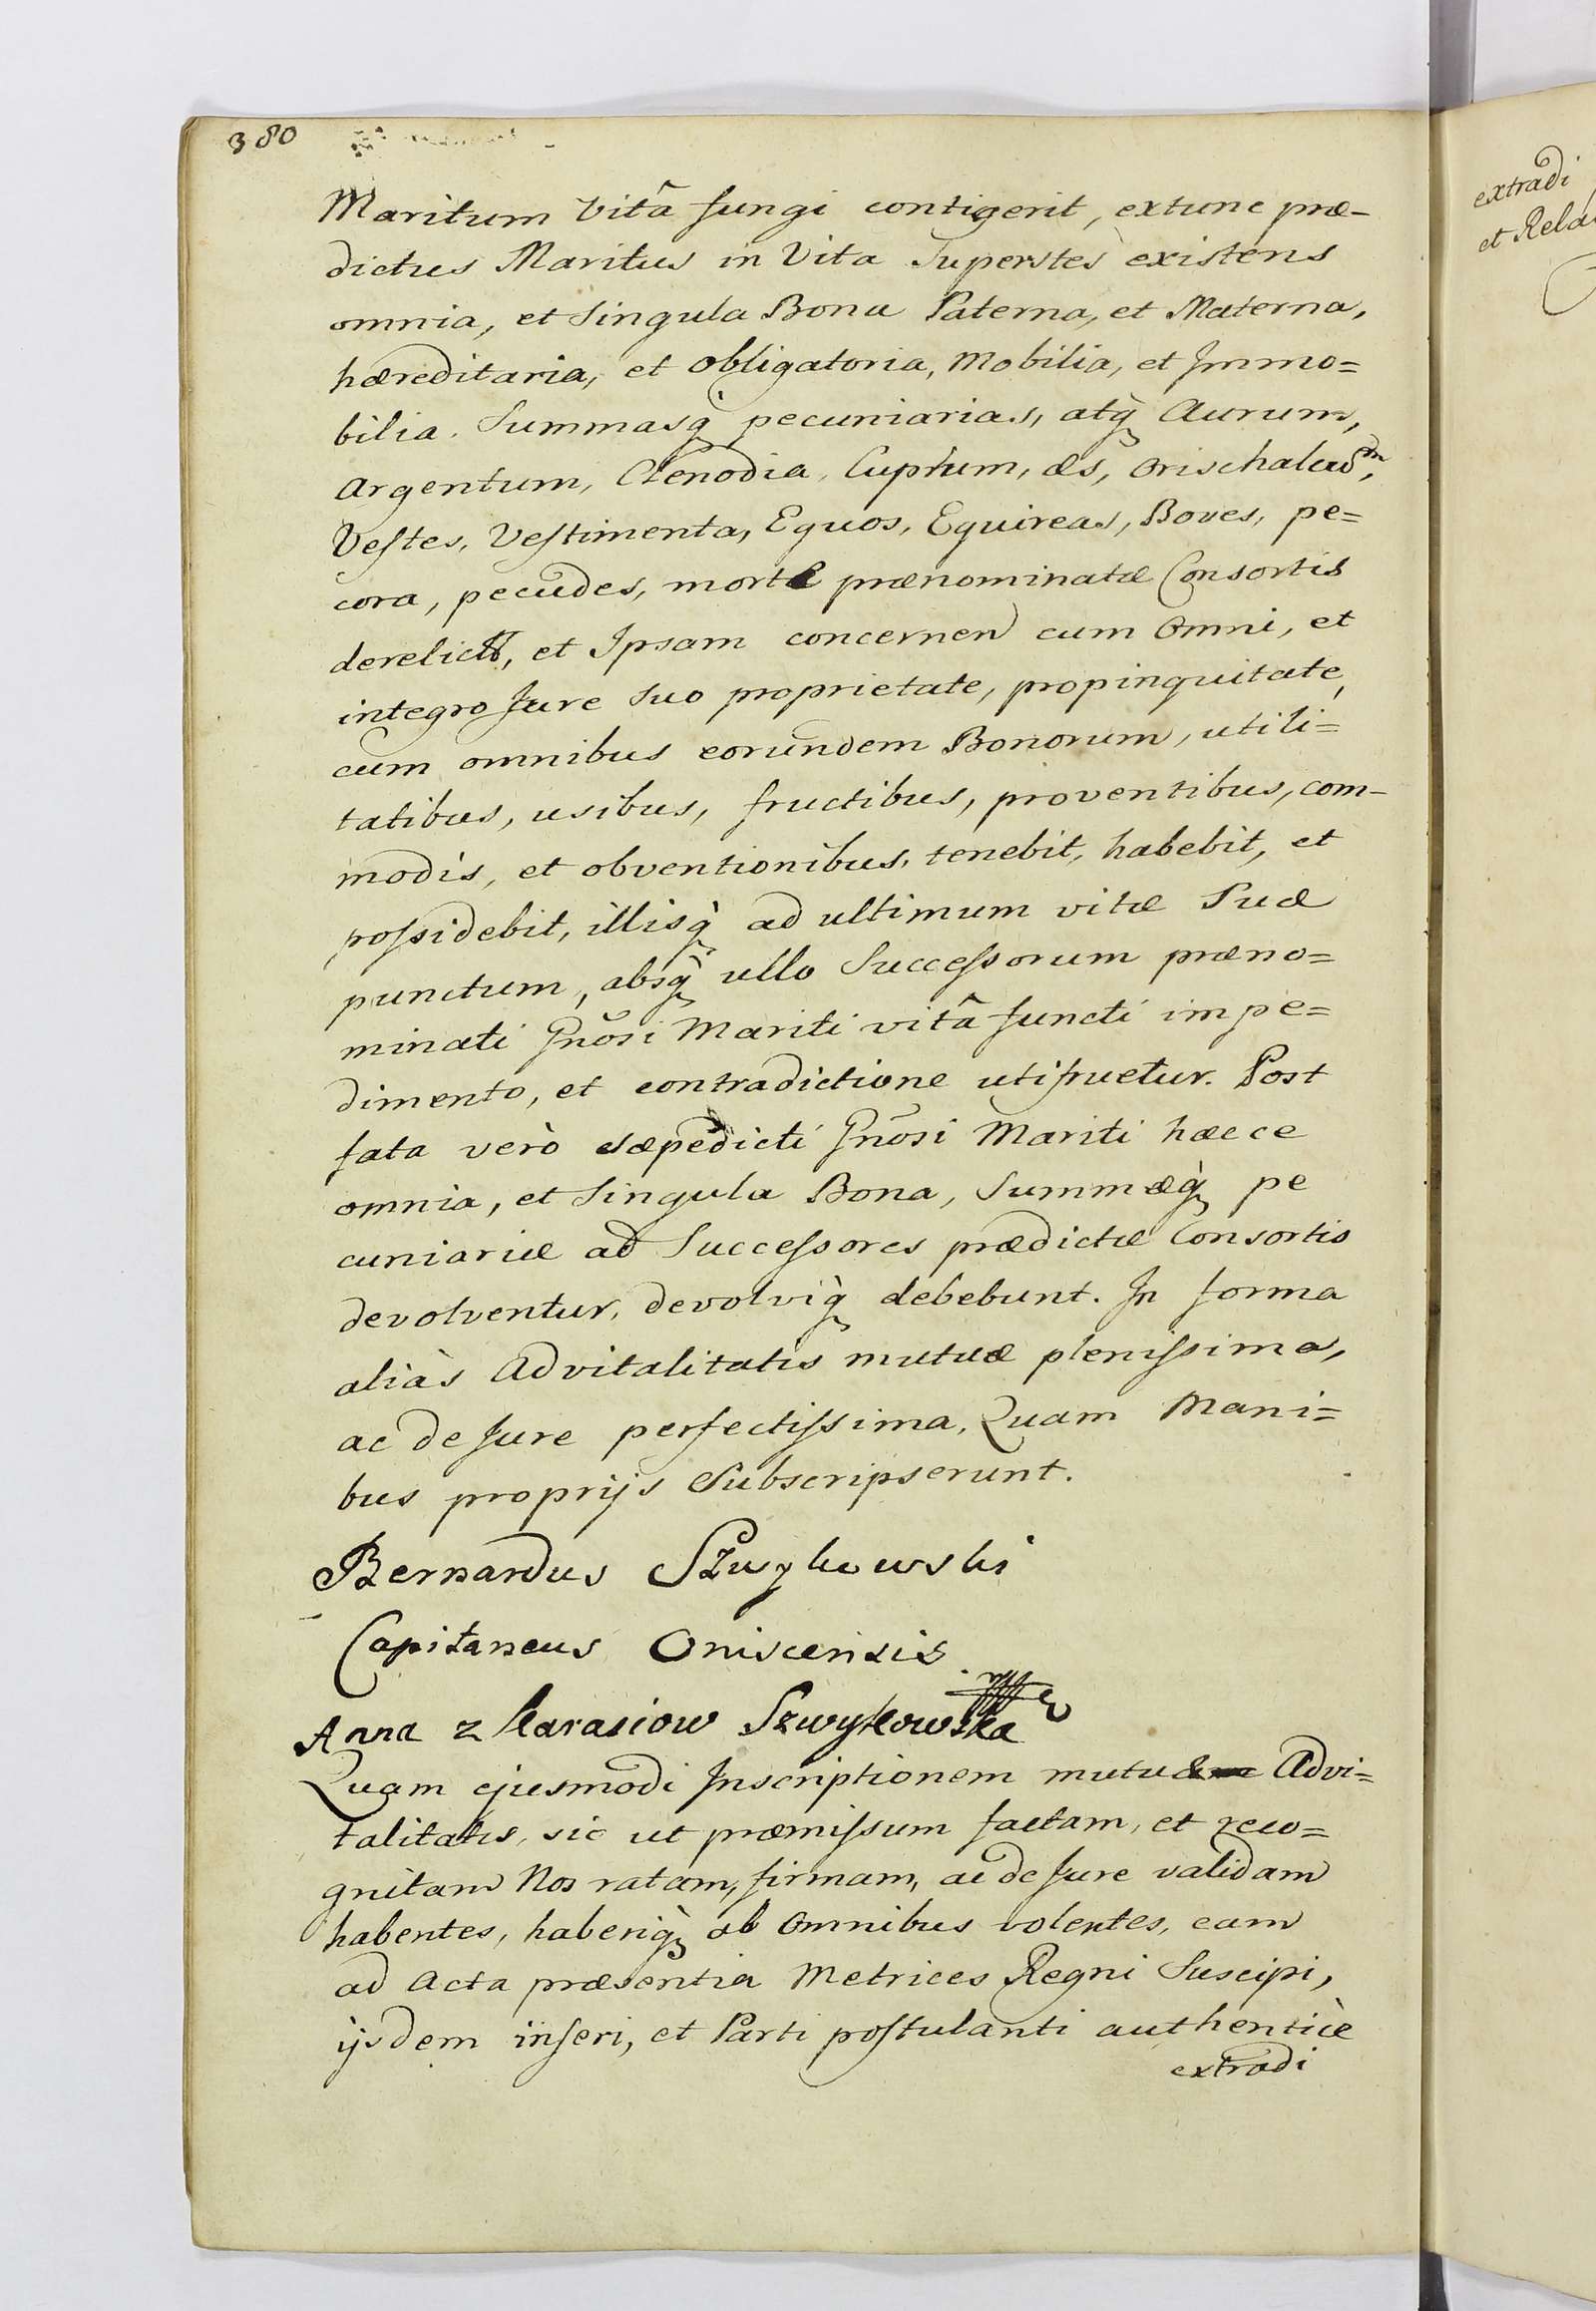 380
Maritum Vitâ fungi contigerit, extunc præ-
dictus Maritus in Vita Superstes existens
omnia, et Singula Bona Paterna, et Materna,
hæreditaria, et obligatoria, Mobilia, et Immo=
bilia. Summasq̀ pecuniarias, atq̀ Aurum,
Argentum, Clenodia, Cuprum, æs, Orischalcum,
Vestes, Vestimenta, Equos, Equireas, Boves, pe=
cora, pecudes, morte prænominatæ Consortis
derelict, et Ipsam concernen cum Omni, et
integro Jure Suo proprietate, propinquitate,
cum omnibus eorundem Bonorum, utili=
tatibus, usibus, fructibus, proventibus, com-
modis, et obventionibus, tenebit, habebit, et
possidebit, illisq̀ ad ultimum vitæ Suæ
punctum, absq̀ ullo Successorum præno=
minati Gñosi Mariti vitâ functi impe=
dimento, et contradictione utifruetur. Post
fata verò sæpedicti Gñosi Mariti hæcce
omnia, et Singula Bona, Summæq̀ pe
cuniariæ ad Successores prædictæ Consortis
devolventur, devolviq̀ debebunt. In forma
aliàs Advitalitatis mutuæ plenissima,
ac de Jure perfectissima, Quam Mani=
bus proprijs Subscripserunt.
Bernardus Szwykowski
Capitaneus Oniscensis
Anna z Karasiow Szwykowska
Quam ejusmodi Inscriptionem mutuæ Advi=
talitatis, sic ut præmissum factam, et reco=
gnitam Nos ratam, firmam, ac de Jure validam
habentes, haberiq̀ ab Omnibus volentes, eam
ad Acta præsentia Metrices Regni Suscipi,
ijsdem inseri, et Parti postulanti authenticè
extradi
extradi
et Rela